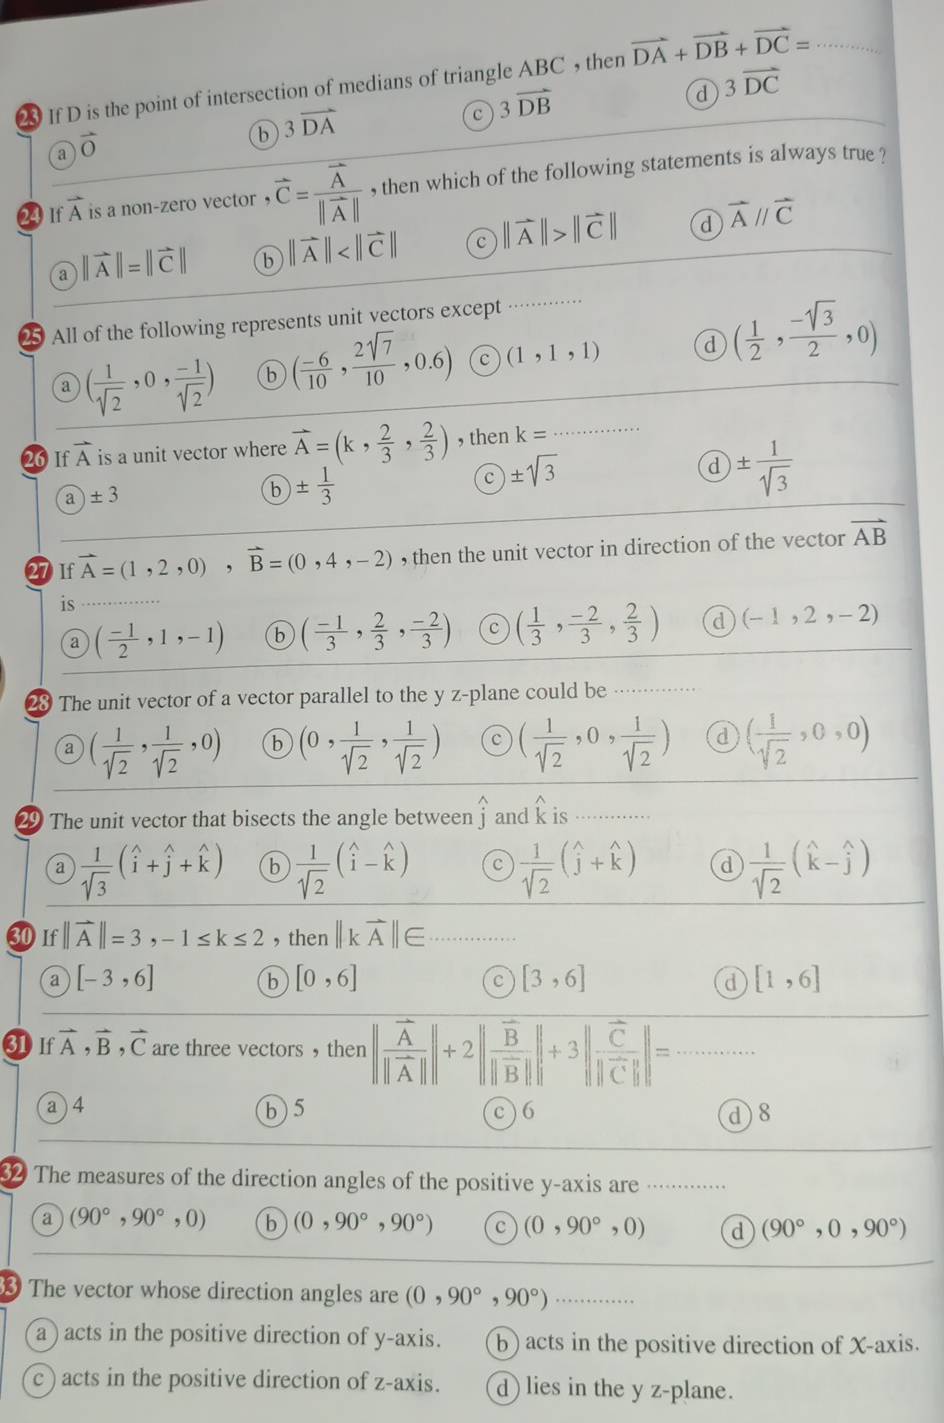 23 If D is the point of intersection of medians of triangle ABC , then $\overrightarrow{DA} + \overrightarrow{DB} + \overrightarrow{DC}$ = ............
a $\overrightarrow{O}$ b 3 $\overrightarrow{DA}$ c 3 $\overrightarrow{DB}$ d 3 $\overrightarrow{DC}$
24 If $\overrightarrow{A}$ is a non-zero vector , $\overrightarrow{C} = \frac{\overrightarrow{A}}{\|\overrightarrow{A}\|}$ , then which of the following statements is always true ?
a $\|\overrightarrow{A}\| = \|\overrightarrow{C}\|$ b $\|\overrightarrow{A}\| < \|\overrightarrow{C}\|$ c $\|\overrightarrow{A}\| > \|\overrightarrow{C}\|$ d $\overrightarrow{A} // \overrightarrow{C}$
25 All of the following represents unit vectors except ............
a $(\frac{1}{\sqrt{2}} , 0 , \frac{-1}{\sqrt{2}})$ b $(\frac{-6}{10} , \frac{2\sqrt{7}}{10} , 0.6)$ c (1 , 1 , 1) d $(\frac{1}{2} , \frac{-\sqrt{3}}{2} , 0)$
26 If $\overrightarrow{A}$ is a unit vector where $\overrightarrow{A} = (k , \frac{2}{3} , \frac{2}{3})$ , then k = ............
a ± 3 b ± $\frac{1}{3}$ c ± $\sqrt{3}$ d ± $\frac{1}{\sqrt{3}}$
27 If $\overrightarrow{A}$ = (1 , 2 , 0) , $\overrightarrow{B}$ = (0 , 4 , − 2) , then the unit vector in direction of the vector $\overrightarrow{AB}$
is ............
a $(\frac{-1}{2} , 1 , -1)$ b $(\frac{-1}{3} , \frac{2}{3} , \frac{-2}{3})$ c $(\frac{1}{3} , \frac{-2}{3} , \frac{2}{3})$ d (− 1 , 2 , − 2)
28 The unit vector of a vector parallel to the y z-plane could be ............
a $(\frac{1}{\sqrt{2}} , \frac{1}{\sqrt{2}} , 0)$ b $(0 , \frac{1}{\sqrt{2}} , \frac{1}{\sqrt{2}})$ c $(\frac{1}{\sqrt{2}} , 0 , \frac{1}{\sqrt{2}})$ d $(\frac{1}{\sqrt{2}} , 0 , 0)$
29 The unit vector that bisects the angle between $\hat{j}$ and $\hat{k}$ is ............
a $\frac{1}{\sqrt{3}} (\hat{i} + \hat{j} + \hat{k})$ b $\frac{1}{\sqrt{2}} (\hat{i} - \hat{k})$ c $\frac{1}{\sqrt{2}} (\hat{j} + \hat{k})$ d $\frac{1}{\sqrt{2}} (\hat{k} - \hat{j})$
30 If $\|\overrightarrow{A}\| = 3$ , − 1 ≤ k ≤ 2 , then $\|k \overrightarrow{A}\|$ ∈ ............
a [− 3 , 6] b [0 , 6] c [3 , 6] d [1 , 6]
31 If $\overrightarrow{A}$ , $\overrightarrow{B}$ , $\overrightarrow{C}$ are three vectors , then $\left\|\frac{\overrightarrow{A}}{\|\overrightarrow{A}\|}\right\| + 2 \left\|\frac{\overrightarrow{B}}{\|\overrightarrow{B}\|}\right\| + 3 \left\|\frac{\overrightarrow{C}}{\|\overrightarrow{C}\|}\right\|$ = ............
a 4 b 5 c 6 d 8
32 The measures of the direction angles of the positive y-axis are ............
a (90° , 90° , 0) b (0 , 90° , 90°) c (0 , 90° , 0) d (90° , 0 , 90°)
33 The vector whose direction angles are (0 , 90° , 90°) ............
a acts in the positive direction of y-axis. b acts in the positive direction of X-axis.
c acts in the positive direction of z-axis. d lies in the y z-plane.